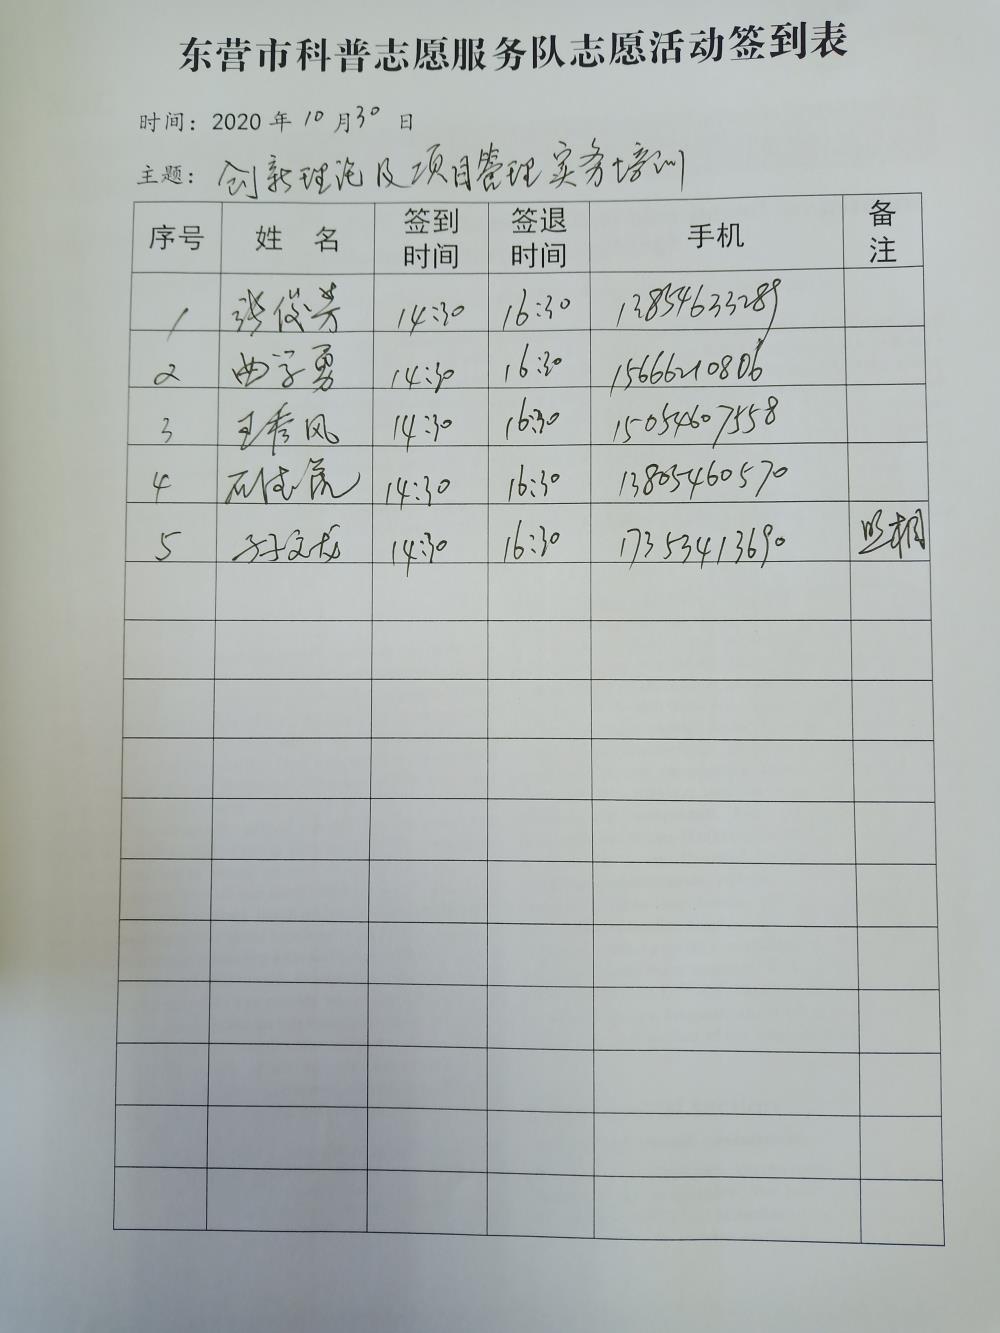 东营市科普志愿服务队志愿活动签到表
时间：2020 年 10 月 30 日
主题：创新理论及项目管理实务培训
序号 姓 名 签到时间 签退时间 手机 备注
1 张俊芳 14:30 16:30 13854633289
2 曲学勇 14:30 16:30 15666210806
3 王秀风 14:30 16:30 15054607558
4 石 14:30 16:30 13805460570
5 孙文龙 14:30 16:30 17353413690 照相